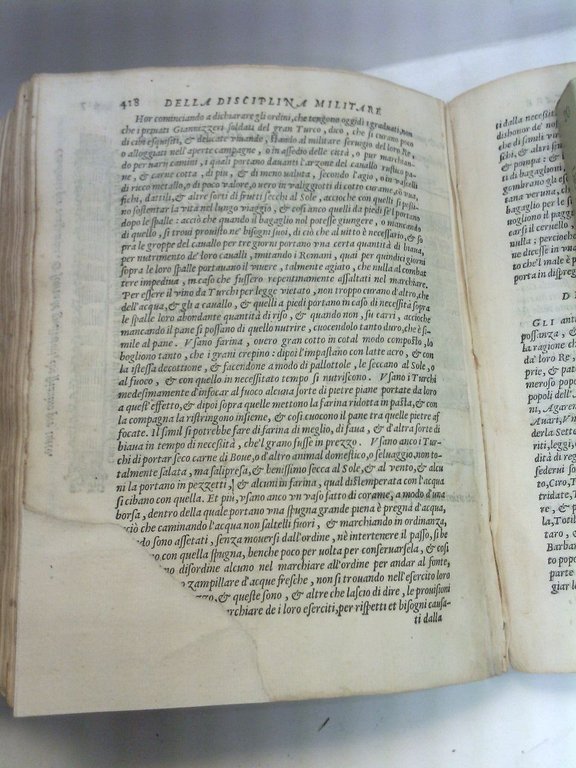 418 DELLA DISCIPLINA MILITARE
Hor cominciando a dichiarare gli ordini, che tengono oggidì i graduati, non
che i priuati Giannizzeri soldati del gran Turco, dico, che si curano poco
di cibi esquisiti, & delicate viuande, stando al militare seruigio del loro Re,
o alloggiati nell'aperte campagne, o in assedio delle città, o pur marchian
do per varii camini, i quali portano dauanti l'arzone del cauallo riso
ne, & carne cotta, di più, & di meno valuta, secondo l'agio, o in vaselli
di ricco metallo, o di poco valore, o uero in valiggiotti di cotto curame, cò vua,
fichi, dattili, & altre sorti di frutti secchi al Sole, accioche con quelli si possa
no sostentar la vita nel lungo viaggio, & così anco quelli da piedi se'l portano
dopo le spalle: acciò che quando il bagaglio nol potesse giungere, o mancando
di quello, si troui prouisto ne' bisogni suoi, di ciò che al uitto è necessario, & so
pra le groppe del cauallo per tre giorni portano vna certa quantità di biaua,
per nutrimento de' loro caualli, imitando i Romani, quai per quindici giorni
sopra le loro spalle portauano il viuere, talmente agiato, che nulla al combat
tere impediua, in caso che fussero repentinamente assaltati nel marchiare.
Per essere il vino da Turchi per legge vietato, non troppo curano d'altro, che
dell'acqua, & gli a cauallo, & quelli a piedi portano in caso di necessità sopra
le spalle loro abondante quantità di riso, & quando non, su carri, accioche
mancando il pane si possano di quello nutrire, cuocendolo tanto duro, che è si-
mile al pane. Vsano farina, ouero gran cotto in cotal modo composto, lo
bogliono tanto, che i grani crepino: dipoi l'impastano con latte acro, & con
la istessa decottione, & facendone a modo di pallottole, le seccano al Sole, o
al fuoco, & con quello in necessitato tempo si nutriscono. Vsano i Turchi
medesimamente d'infocar al fuoco alcuna sorte di pietre piane portate da loro
a quest'effetto, & dipoi sopra quelle mettono la farina ridotta in pasta, & con
la compagna la ristringono insieme, & così cuocono il pane tra quelle pietre af
focate. Il simil si potrebbe fare di farina di meglio, di faua, & d'altra sorte di
biaua in tempo di necessità, che'l grano fusse in prezzo. Vsano anco i Tur-
chi di portar seco carne di Boue, o d'altro animal domestico, o seluaggio, non to-
talmente salata, ma salipresa, & benissimo secca al Sole, & al vento, & alcu
ni la portano in pezzetti, & alcuni in farina, qual distemperata con l'acqua
si cibano con quella. Et più, vsano anco vn vaso fatto di corame, a modo d'una
borsa, dentro della quale portano vna spugna grande piena e pregna d'acqua,
ciò che caminando l'acqua non saltelli fuori, & marchiando in ordinanza,
ndo sono assetati, senza mouersi dall'ordine, nè intertenere il passo, si be
o con quella spugna, benche poco per volta per conseruarsela, & così
no disordine alcuno nel marchiare all'ordine per andar al fonte,
o zampillare d'acque fresche, non si trouando nell'esercito loro
zzo, & queste sono, & altre che lascio di dire, le prouisioni
rchiare de i loro eserciti, per rispetti et bisogni causa-
ti dalla
ti dalla necessit
dishonor de' nos
schi, & altri sim
& pompa: & t
di bagaglioni,
gombrano gli es
tana veruna, ch
bagaglio per le s
uogliono il paggi
earsi il ceruello,
nulla: percioche
ne dicesse in vn
to che'l male è p
porta in dispreg
D
GLI anti
possanza, &
la ragione, ch
da' loro Re,
prie, & pat
meroso popo
popoli dell'A
ni, Agaren
Auari, Vn
derla Sette
riti, leggi, c
dità di reg
sederui so
to, Ciro, T
tridate, T
ro, con
la, Totil
taro,
Barban
to popo
parte
giar lo